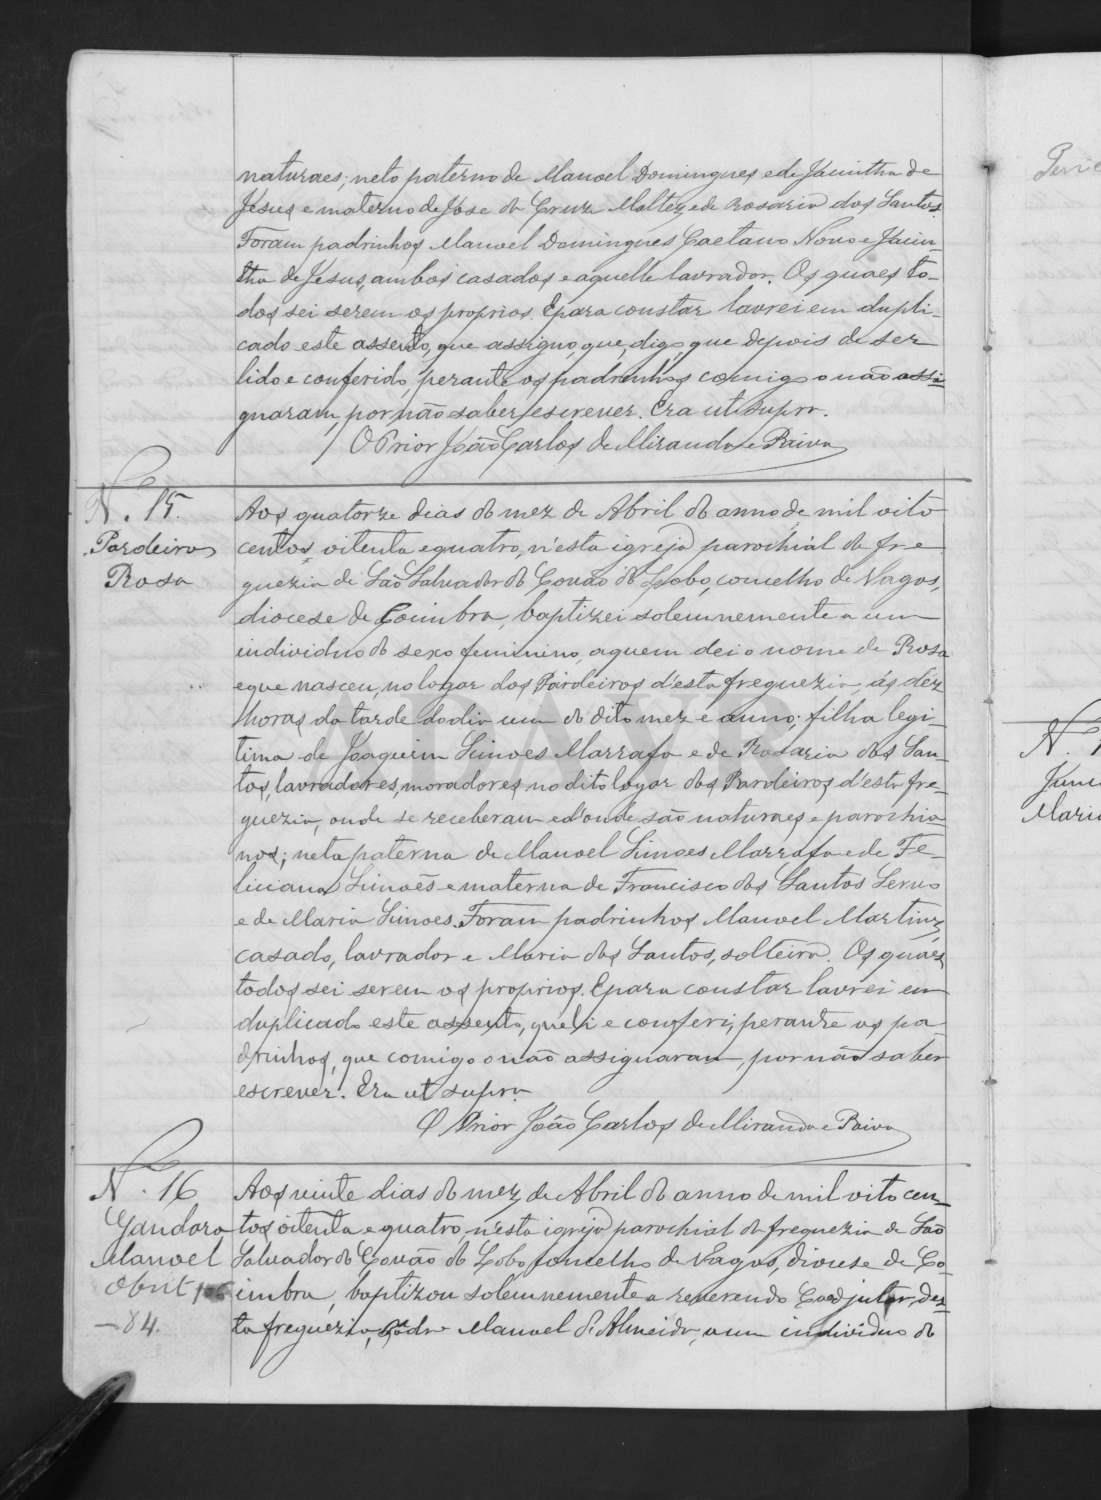 naturaes; neto paterno de Manoel Domingues e de Jacintha de
Jesus e materno de Jose da Cruz Maltez e de Rosaria dos Santos.
Foram padrinhos Manoel Domingues Caetano Novo e Jacin-
tha de Jesus, ambos casados e aquelle lavrador. Os quaes to-
dos sei serem os proprios. E para constar lavrei em dupli-
cado este assento, que assigno, que, digo, que depois de ser
lido e conferido, perante os padrinhos comigo o não assi-
gnaram, por não saber escrever. Era ut supra.
O Prior João Carlos de Miranda e Paiva
N. 15.
Pardeiros
Rosa
Aos quatorze dias do mez de Abril do anno de mil oito
centos oitenta e quatro, n'esta igreja parochial da fre
guezia de São Salvador do Covão do Lobo, concelho de Vagos,
diocese de Coimbra, baptizei solemnemente a um
individuo do sexo feminino, a quem dei o nome de Rosa
e que nasceu, no logar dos Pardeiros d'esta freguezia, ás dez
horas da tarde do dia um do dito mez e anno; filha legi-
tima de Joaquim Simoes Marrafa e de Rosaria dos San-
tos, lavradores, moradores no dito logar dos Pardeiros d'esta fre-
guezia, onde se receberam e d'onde são naturaes e parochia
nos; neta paterna de Manoel Simoes Marrafa e de Fe-
liciana Simoes e materna de Francisco dos Santos
e de Maria Simoes. Foram padrinhos Manoel Martins,
casado, lavrador e Maria dos Santos, solteira. Os quaes
todos sei serem os proprios. E para constar lavrei em
duplicado este assento, que li e conferi, perante os pa-
drinhos, que comigo o não assignaram, por não saber
escrever. Era ut supra
O Prior João Carlos de Miranda e Paiva
N. 16
Gandara
Manoel
Obiit
-84.
Aos vinte dias do mez de Abril do anno de mil oito cen-
tos oitenta e quatro, n'esta igreja parochial da freguezia de São
Salvador do Covão do Lobo, concelho de Vagos, diocese de Co-
imbra, baptizou solemnemente o reverendo Coadjutor, des-
ta freguezia, Padre Manoel d'Almeida, a um individuo do
N.
Maria